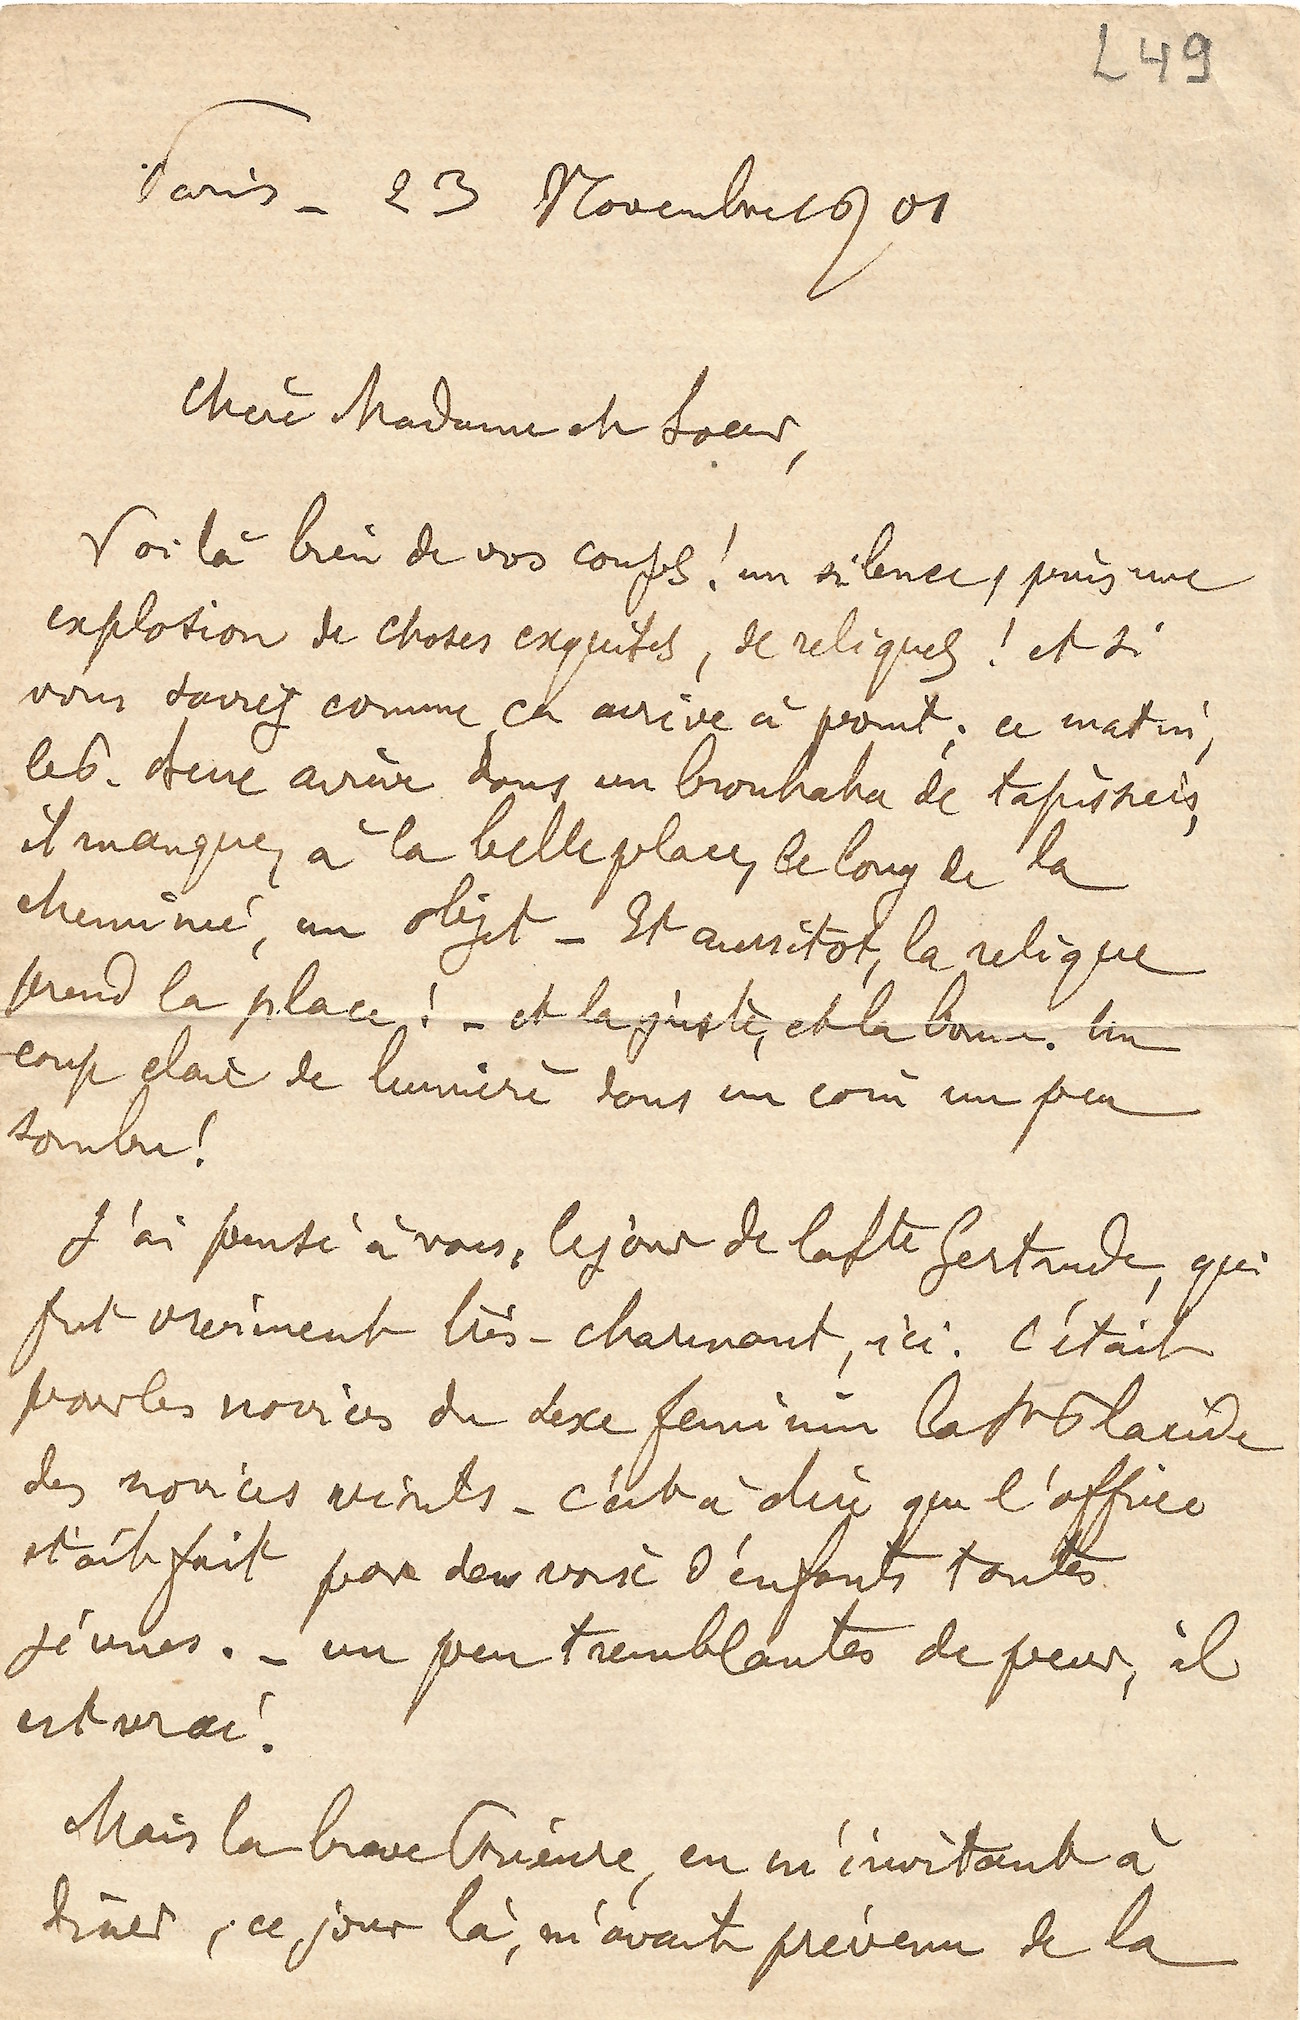 L 49
Paris - 23 Novembre 1901
Chère Madame et Soeur,
Voilà bien de vos coups ! un silence, puis une
explosion de choses exquises, de reliques ! et si
vous saviez comme ça arrive à point ; ce matin,
arrive dans un brouhaha de tapissiers,
il manque, à la belle place, le long de la
cheminée, un objet - Et aussitôt, la relique
prend la place ! - et la juste, et la bonne. Un
coup clair de lumière dans un coin un peu
sombre !
J'ai pensé à vous, le jour de la Ste Gertrude, qui
fut vraiment très-charmant, ici. C'était
pour les novices du sexe féminin la St Placide
des novices - c'est à dire que l'office
était fait par des voix d'enfants toutes
jeunes. - un peu tremblantes de peur, il
est vrai !
Mais la brave Prieure, en m'invitant à
dîner, ce jour là, m'avait prévenu de la